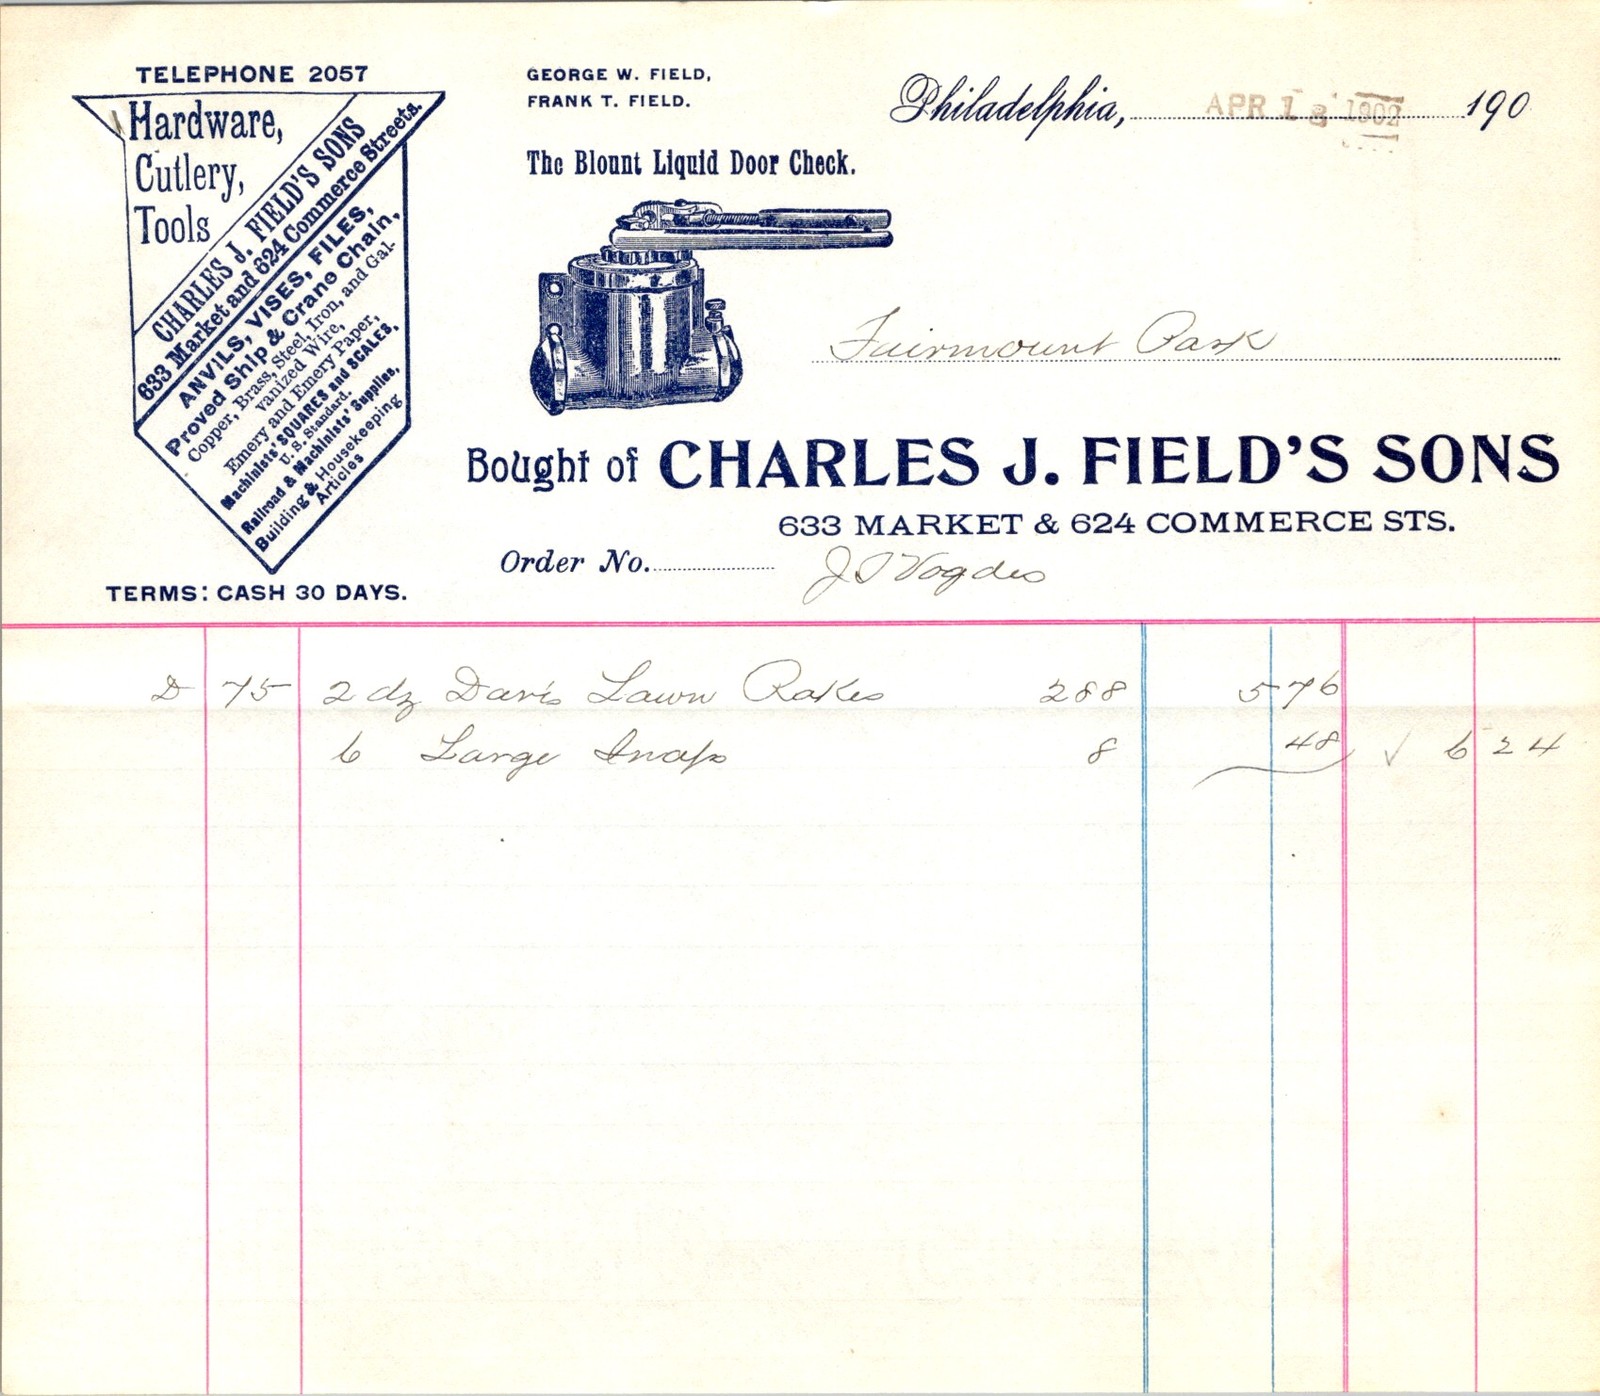 TELEPHONE 2057
Hardware,
Cutlery,
Tools
CHARLES J. FIELD'S SONS
633 Market and 624 Commerce Streets.
ANVILS, VISES, FILES,
Proved Ship & Crane Chain,
Copper, Brass, Steel, Iron, and Gal-
vanized Wire,
Emery and Emery Paper,
Machinists' SQUARES and SCALES,
U. S. Standard.
Railroad & Machinists' Supplies,
Building & Housekeeping
Articles
TERMS: CASH 30 DAYS.
GEORGE W. FIELD,
FRANK T. FIELD.
The Blount Liquid Door Check.
Philadelphia, APR 18 1902 190
Fairmount Park
Bought of CHARLES J. FIELD'S SONS
633 MARKET & 624 COMMERCE STS.
Order No. J Vogdes
D 75 2 dz Davis Lawn Rakes 288 576
6 Large Snaps 8 48 ✓ 6 24